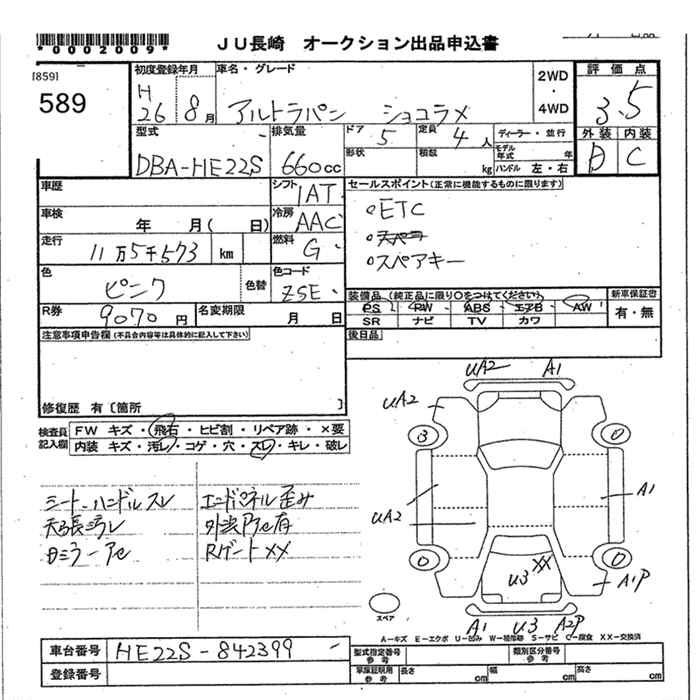 *0002009*
JU長崎 オークション出品申込書
[859]
589
初度登録年月
H
26 8月
車名・グレード
アルトラパン ショコラメ
2WD
・
4WD
評価点
3.5
型式
DBA-HE22S
排気量
660cc
ドア 5
定員 4人
形状
積載 kg
ディーラー・並行
モデル年式 年
ハンドル 左・右
外装 内装
D C
車歴
シフト IAT
セールスポイント(正常に機能するものに限ります)
車検 年 月( 日)
冷房 AAC
・ETC
走行 11万5千573 km
燃料 G
・スペアキー
色 ピンク 色替
色コード ZSE
装備品(純正品に限り○をつけてください)
新車保証書
PS PW ABS エアB AW
有・無
R券 9070円
名変期限 月 日
SR ナビ TV カワ
注意事項申告欄(不具合内容等は具体的に記入して下さい)
後日品
修復歴 有〔箇所 〕
検査員記入欄
FW キズ・飛石・ヒビ割・リペア跡・×要
内装 キズ・汚レ・コゲ・穴・スレ・キレ・破レ
シート、ハンドルスレ
エンドパネル歪み
天張汚レ
Rゲート××
UA2 A1
UA2
3 0
UA2 A1
0 0
XX
U3
A1P
スペア
A1 U3 A2P
A-キズ E-エクボ U-凹み W-補修跡 S-サビ C-腐食 XX-交換済
車台番号 HE22S-842399
登録番号
型式指定番号 参考
類別区分番号 参考
車庫証明用 参考
長さ cm
幅 cm
高さ cm